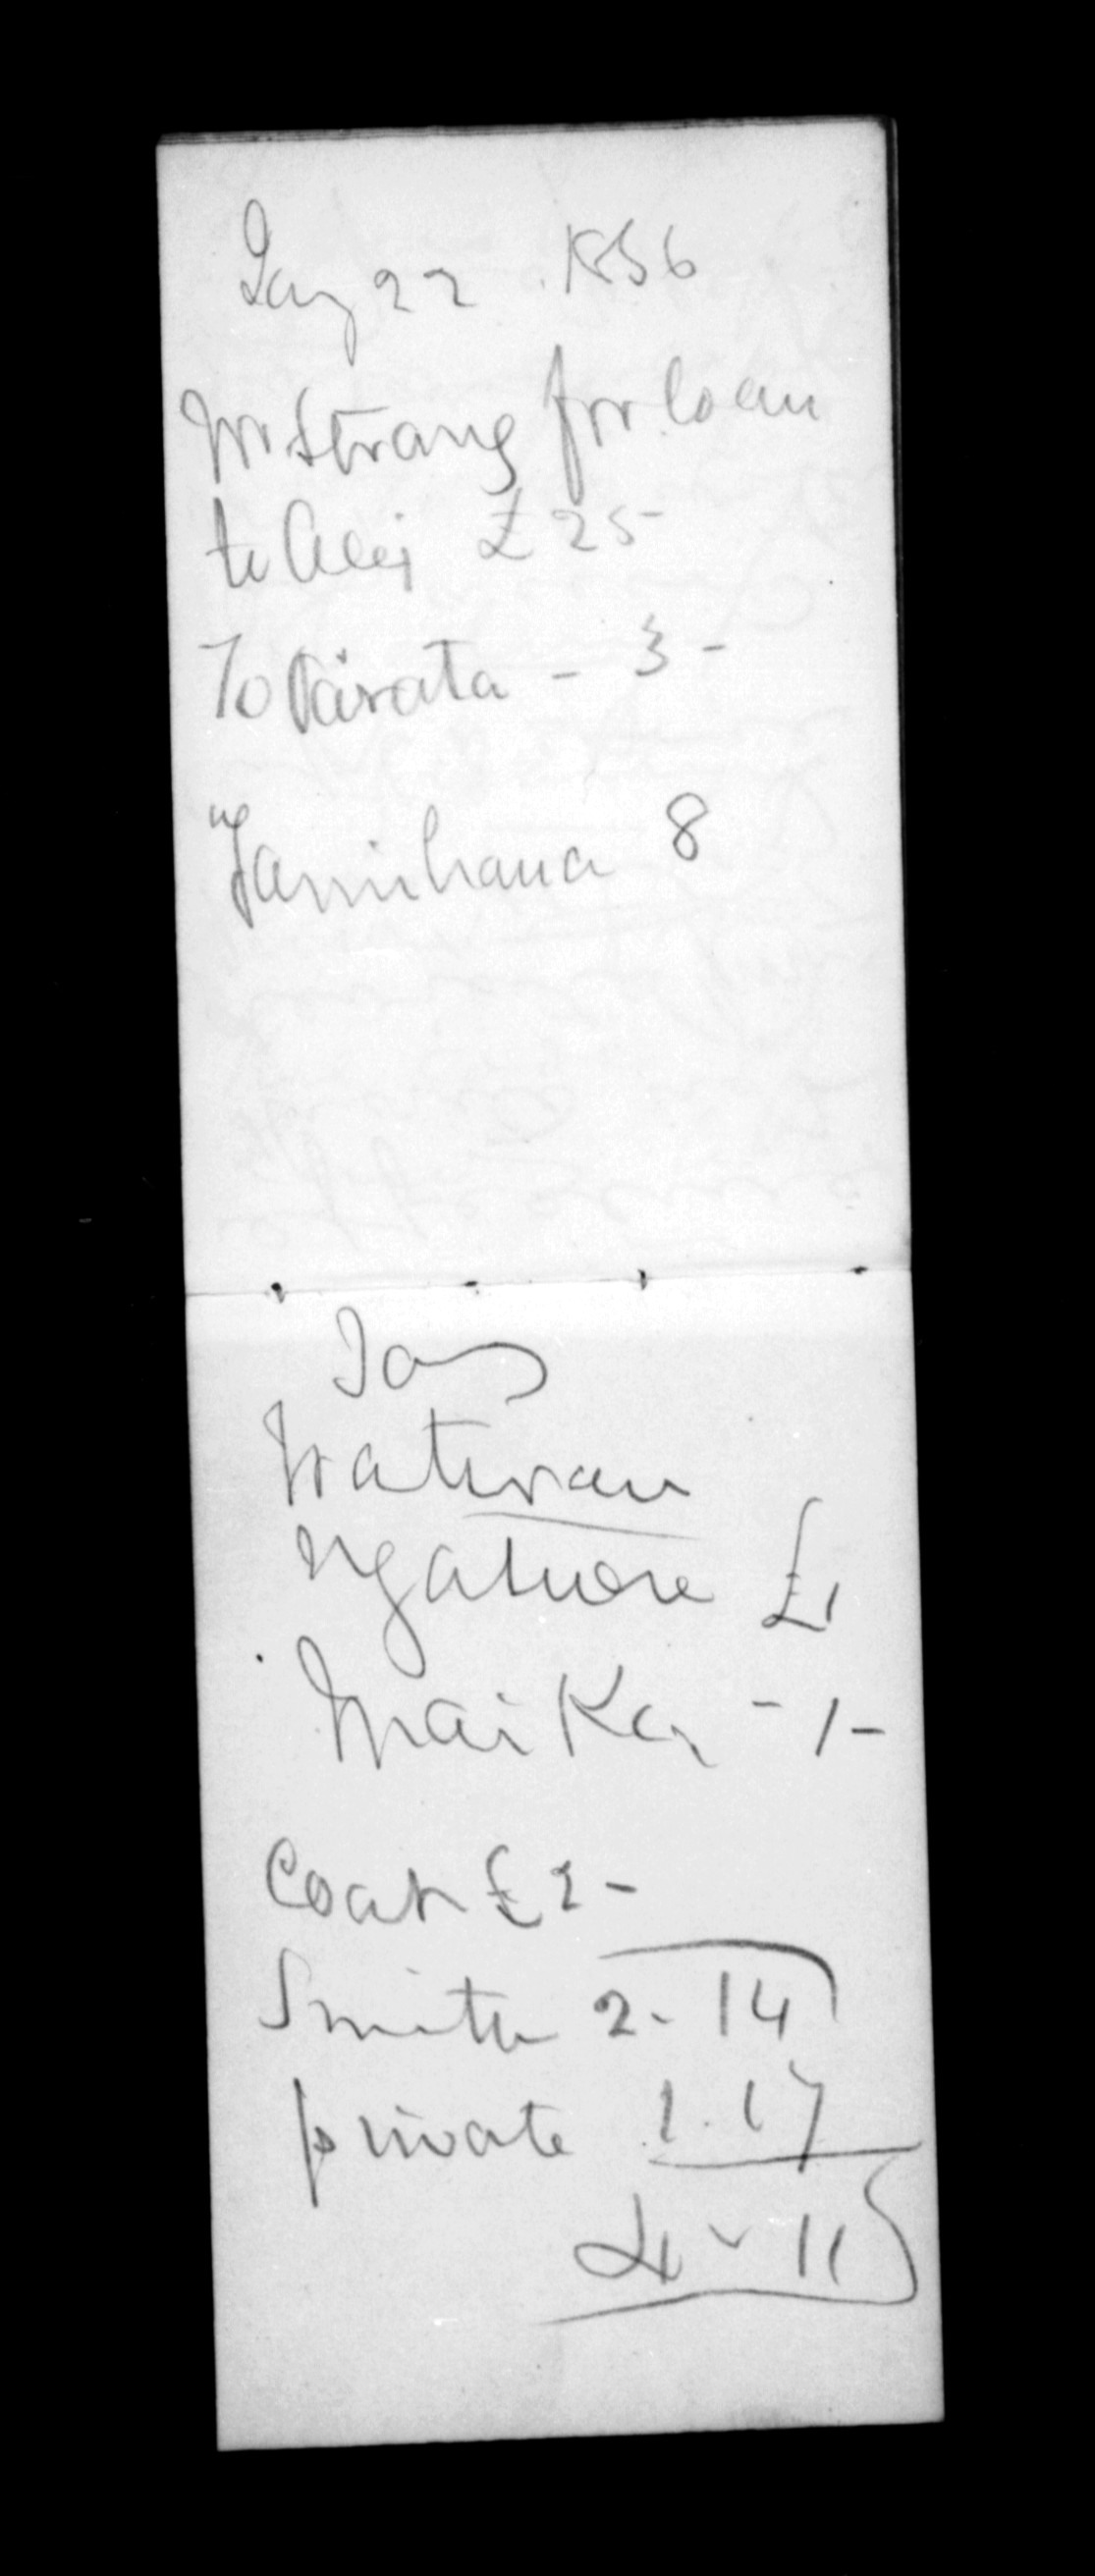 Jany 22 1856
Mr Strang for loan
to Alej £ 25-
To Parata - 3 -
Tamihana 8
Jany
Ngatuere £1
Mai Key - 1 -
Coat £ 2 -
Smith 2 - 14
private 1 . 17
4 - 11